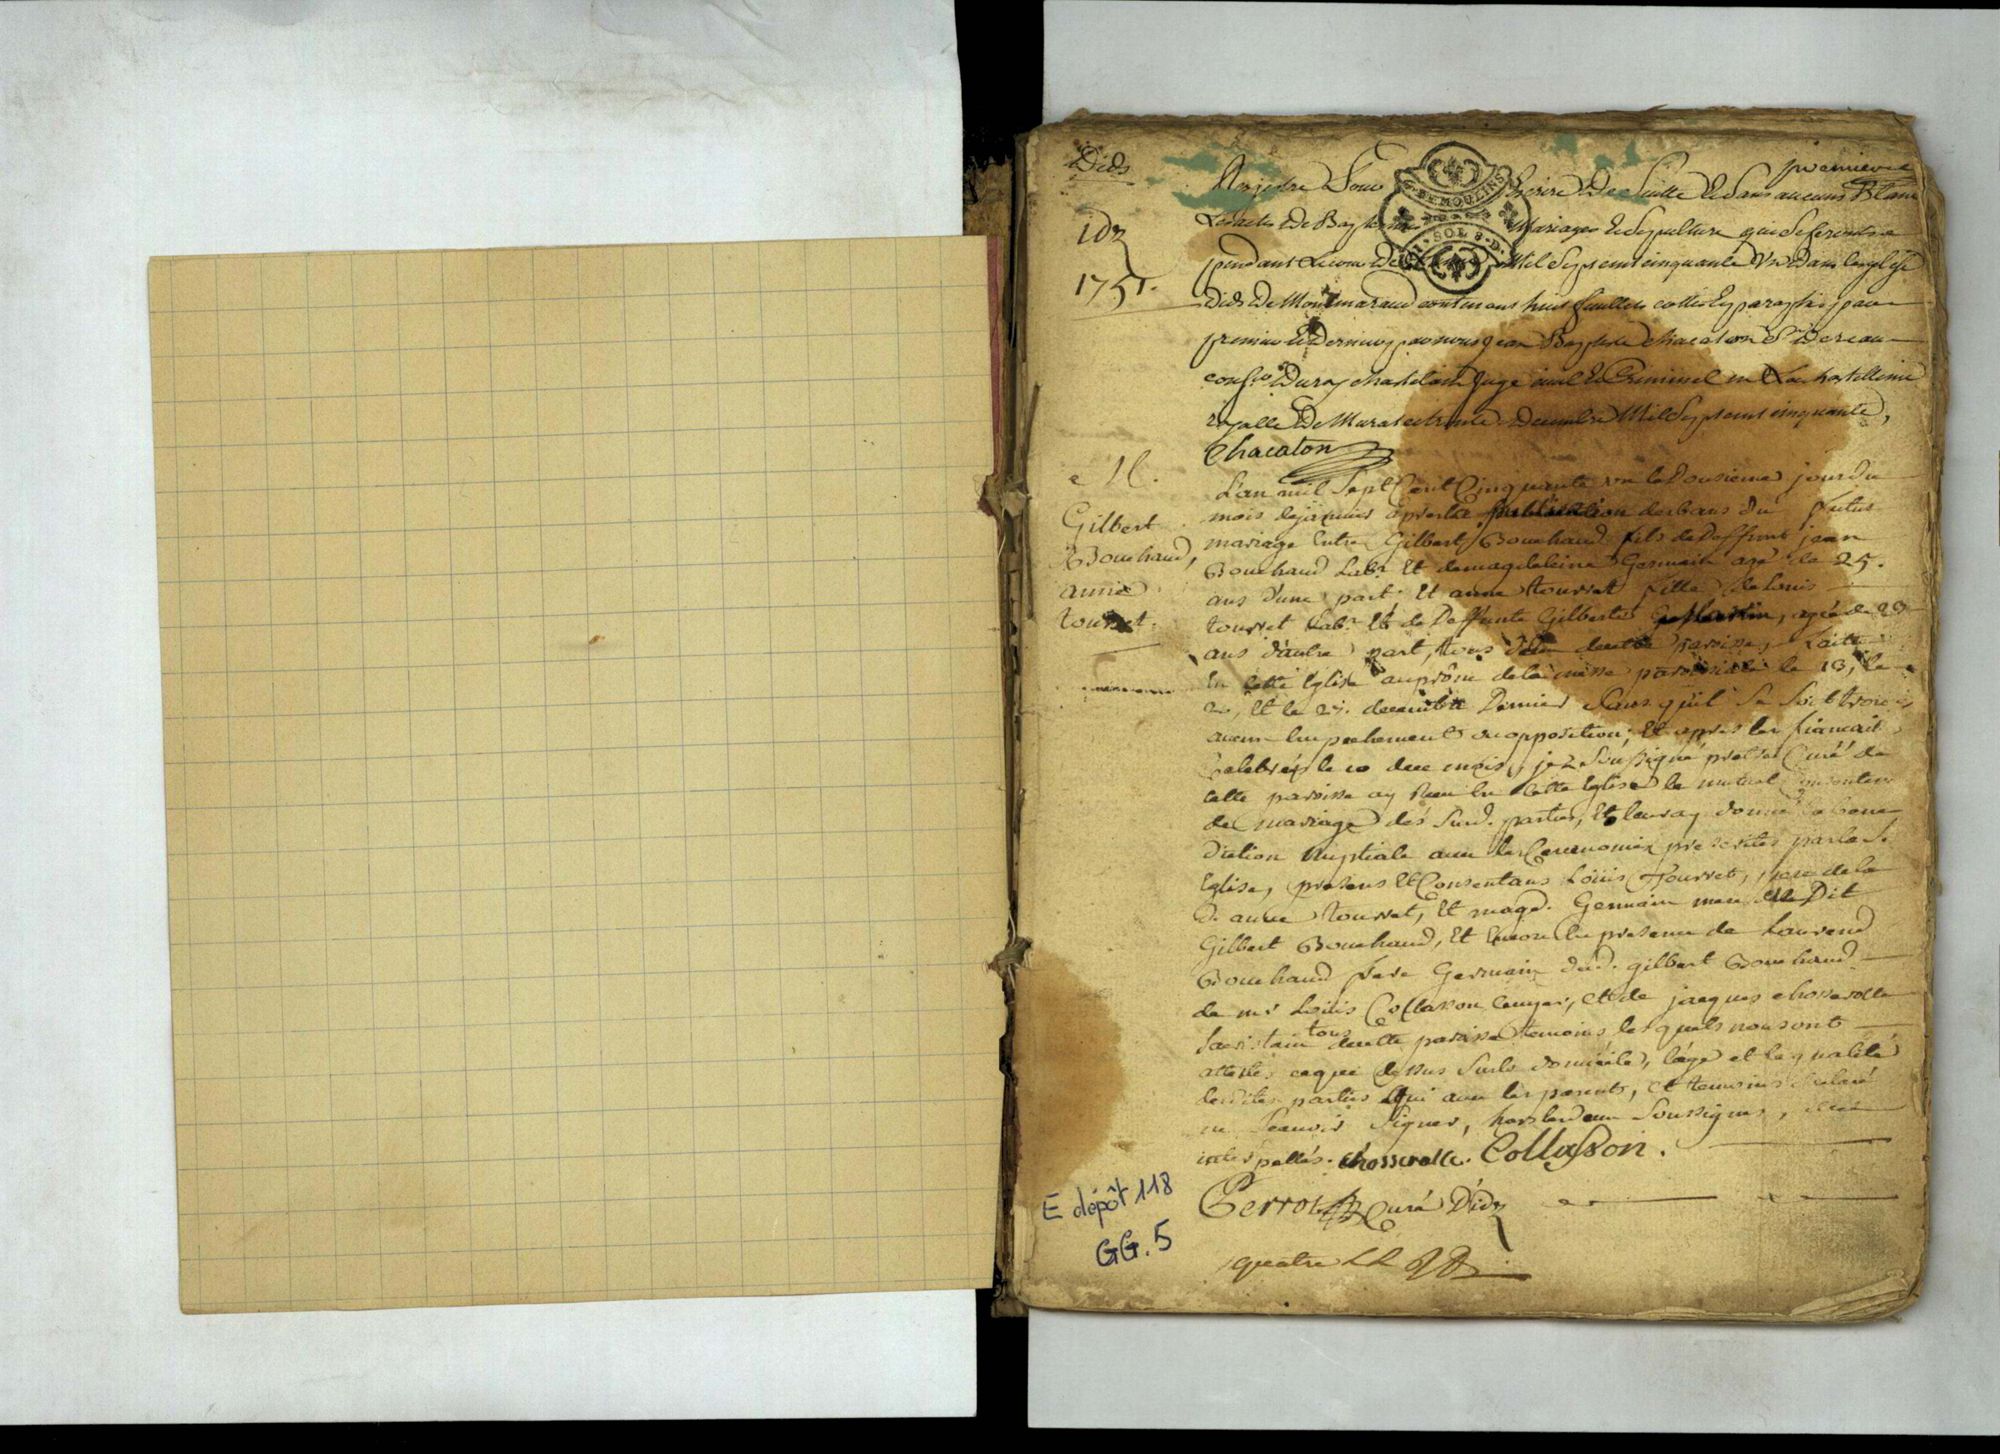 Dids
premiere
Registre Pour Escrire De Suitte Et Sans aucuns Blanc
Les actes De Baptesme Mariages Et Sepulture qui Se feront
pendant Le cour De Mil Sept cent cinquante Un Dans leglise
Dids De Montmaraud contenant huit feuillets cottés Et paraphés par
premier Et Dernier par nous Jean Baptiste Chacaton Sr Dereau
consr Du roy chastelain Juge civil Et Criminel en La chastellenie
royalle De Murat ce trente Decembre Mil Sept cent cinquante,
Chacaton
G. DE MOULINS
SOL 8. D.
idz
1751.
M.
Gilbert
Bouchaud,
anne
tourret.
L'an mil Sept Cent Cinquante un le Dousieme jour du
mois de janvier apres la publication des bans du futur
mariage Entre Gilbert Bouchaud fils de Deffunt jean
Bouchaud Labr. Et de magdeleine Germain agé de 25.
ans d'une part. Et anne tourret fille de Louis
tourret Labr. Et de Deffunte Gilberte agée de 23
ans d'autre part, tous de cette paroisse, faitte
En cette Eglise au prône de la messe paroissiale le 13, le
20, Et le 27. decembre Dernier Sans qu'il Se Soit trouvé
aucun Empechement ou opposition; Et apres les fiançailles
Celebrées le 10 dud mois, je Soussigné pretre Curé de
cette paroisse ay Recu En cette Eglise le mutuel Consentement
de mariage des Susd. parties, Et leur ay donné la bene
diction Nuptiale avec les Ceremonies prescrites par la Ste
Eglise, presens Et Consentans Loüis Tourret, pere de la
d. anne tourret, Et magd. Germain mere du Dit
Gilbert Bouchaud, Et Encore En presence de Laurend
Bouchaud frere Germain dud. gilbert Bouchaud
de mr Loüis Collasson, Et de jacques chosserotte
Sacristain tous de cette paroisse temoins les quels nous ont
attestés ce que dessus Sur le domicile, l'age et la qualité
desdites parties qui avec les parents, et temoins declaré
ne Scavoir Signer, hors les deux Soussignes, de ce
interpellés. chosserotte. Collasson.
Perrot Curé D'idz
quatre
E dépôt 118
GG. 5